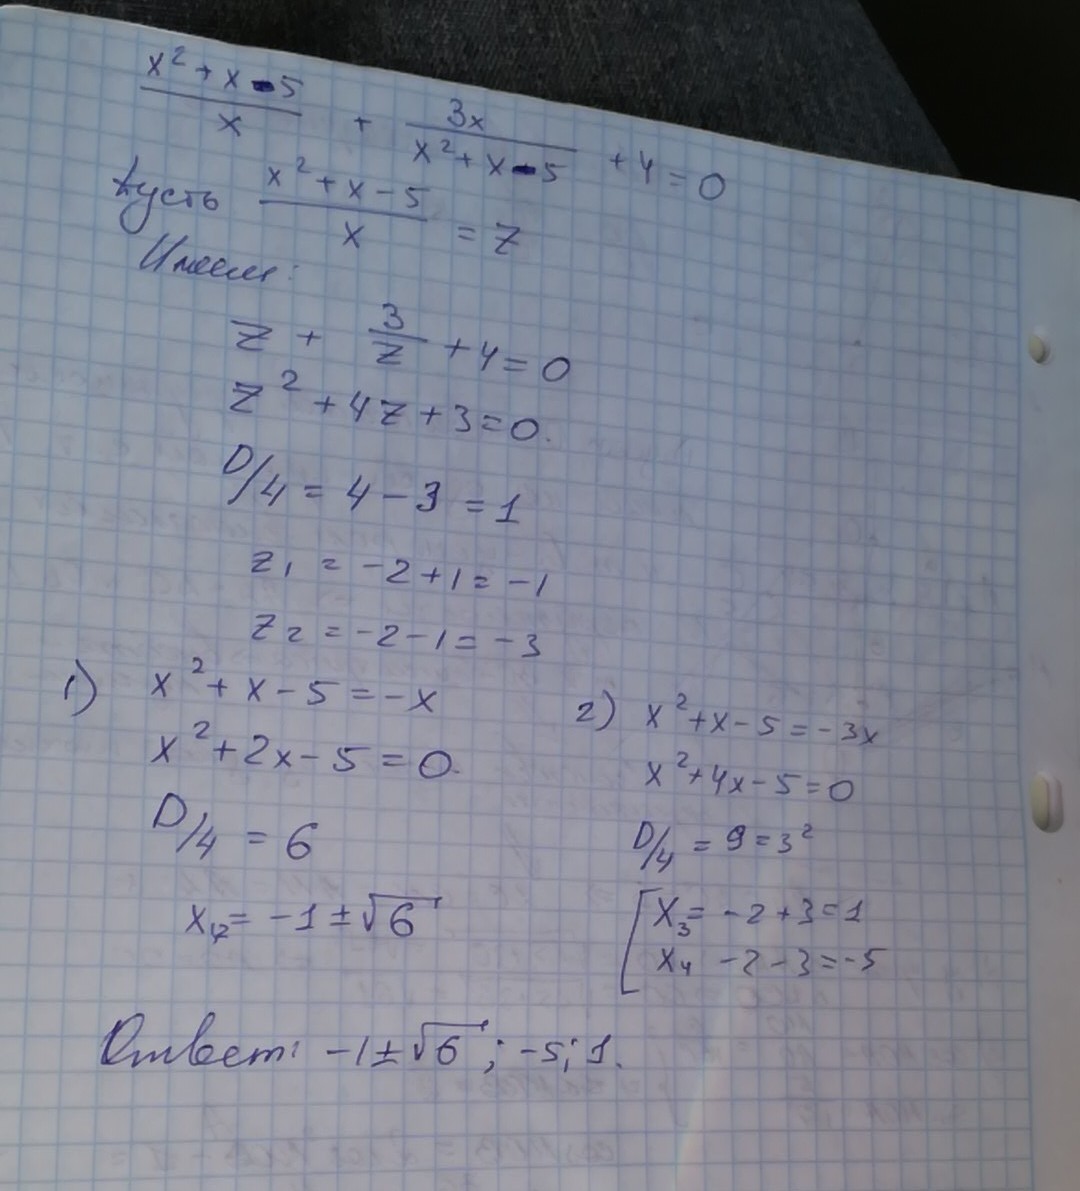 (x² + x - 5)/x + 3x/(x² + x - 5) + 4 = 0
Пусть (x² + x - 5)/x = z
Имеем:
z + 3/z + 4 = 0
z² + 4z + 3 = 0.
D/4 = 4 - 3 = 1
z₁ = -2 + 1 = -1
z₂ = -2 - 1 = -3
1) x² + x - 5 = -x
x² + 2x - 5 = 0.
D/4 = 6
x₁,₂ = -1 ± √6
2) x² + x - 5 = -3x
x² + 4x - 5 = 0
D/4 = 9 = 3²
[ x₃ = -2 + 3 = 1
x₄ -2 - 3 = -5
Ответ: -1 ± √6 ; -5; 1.